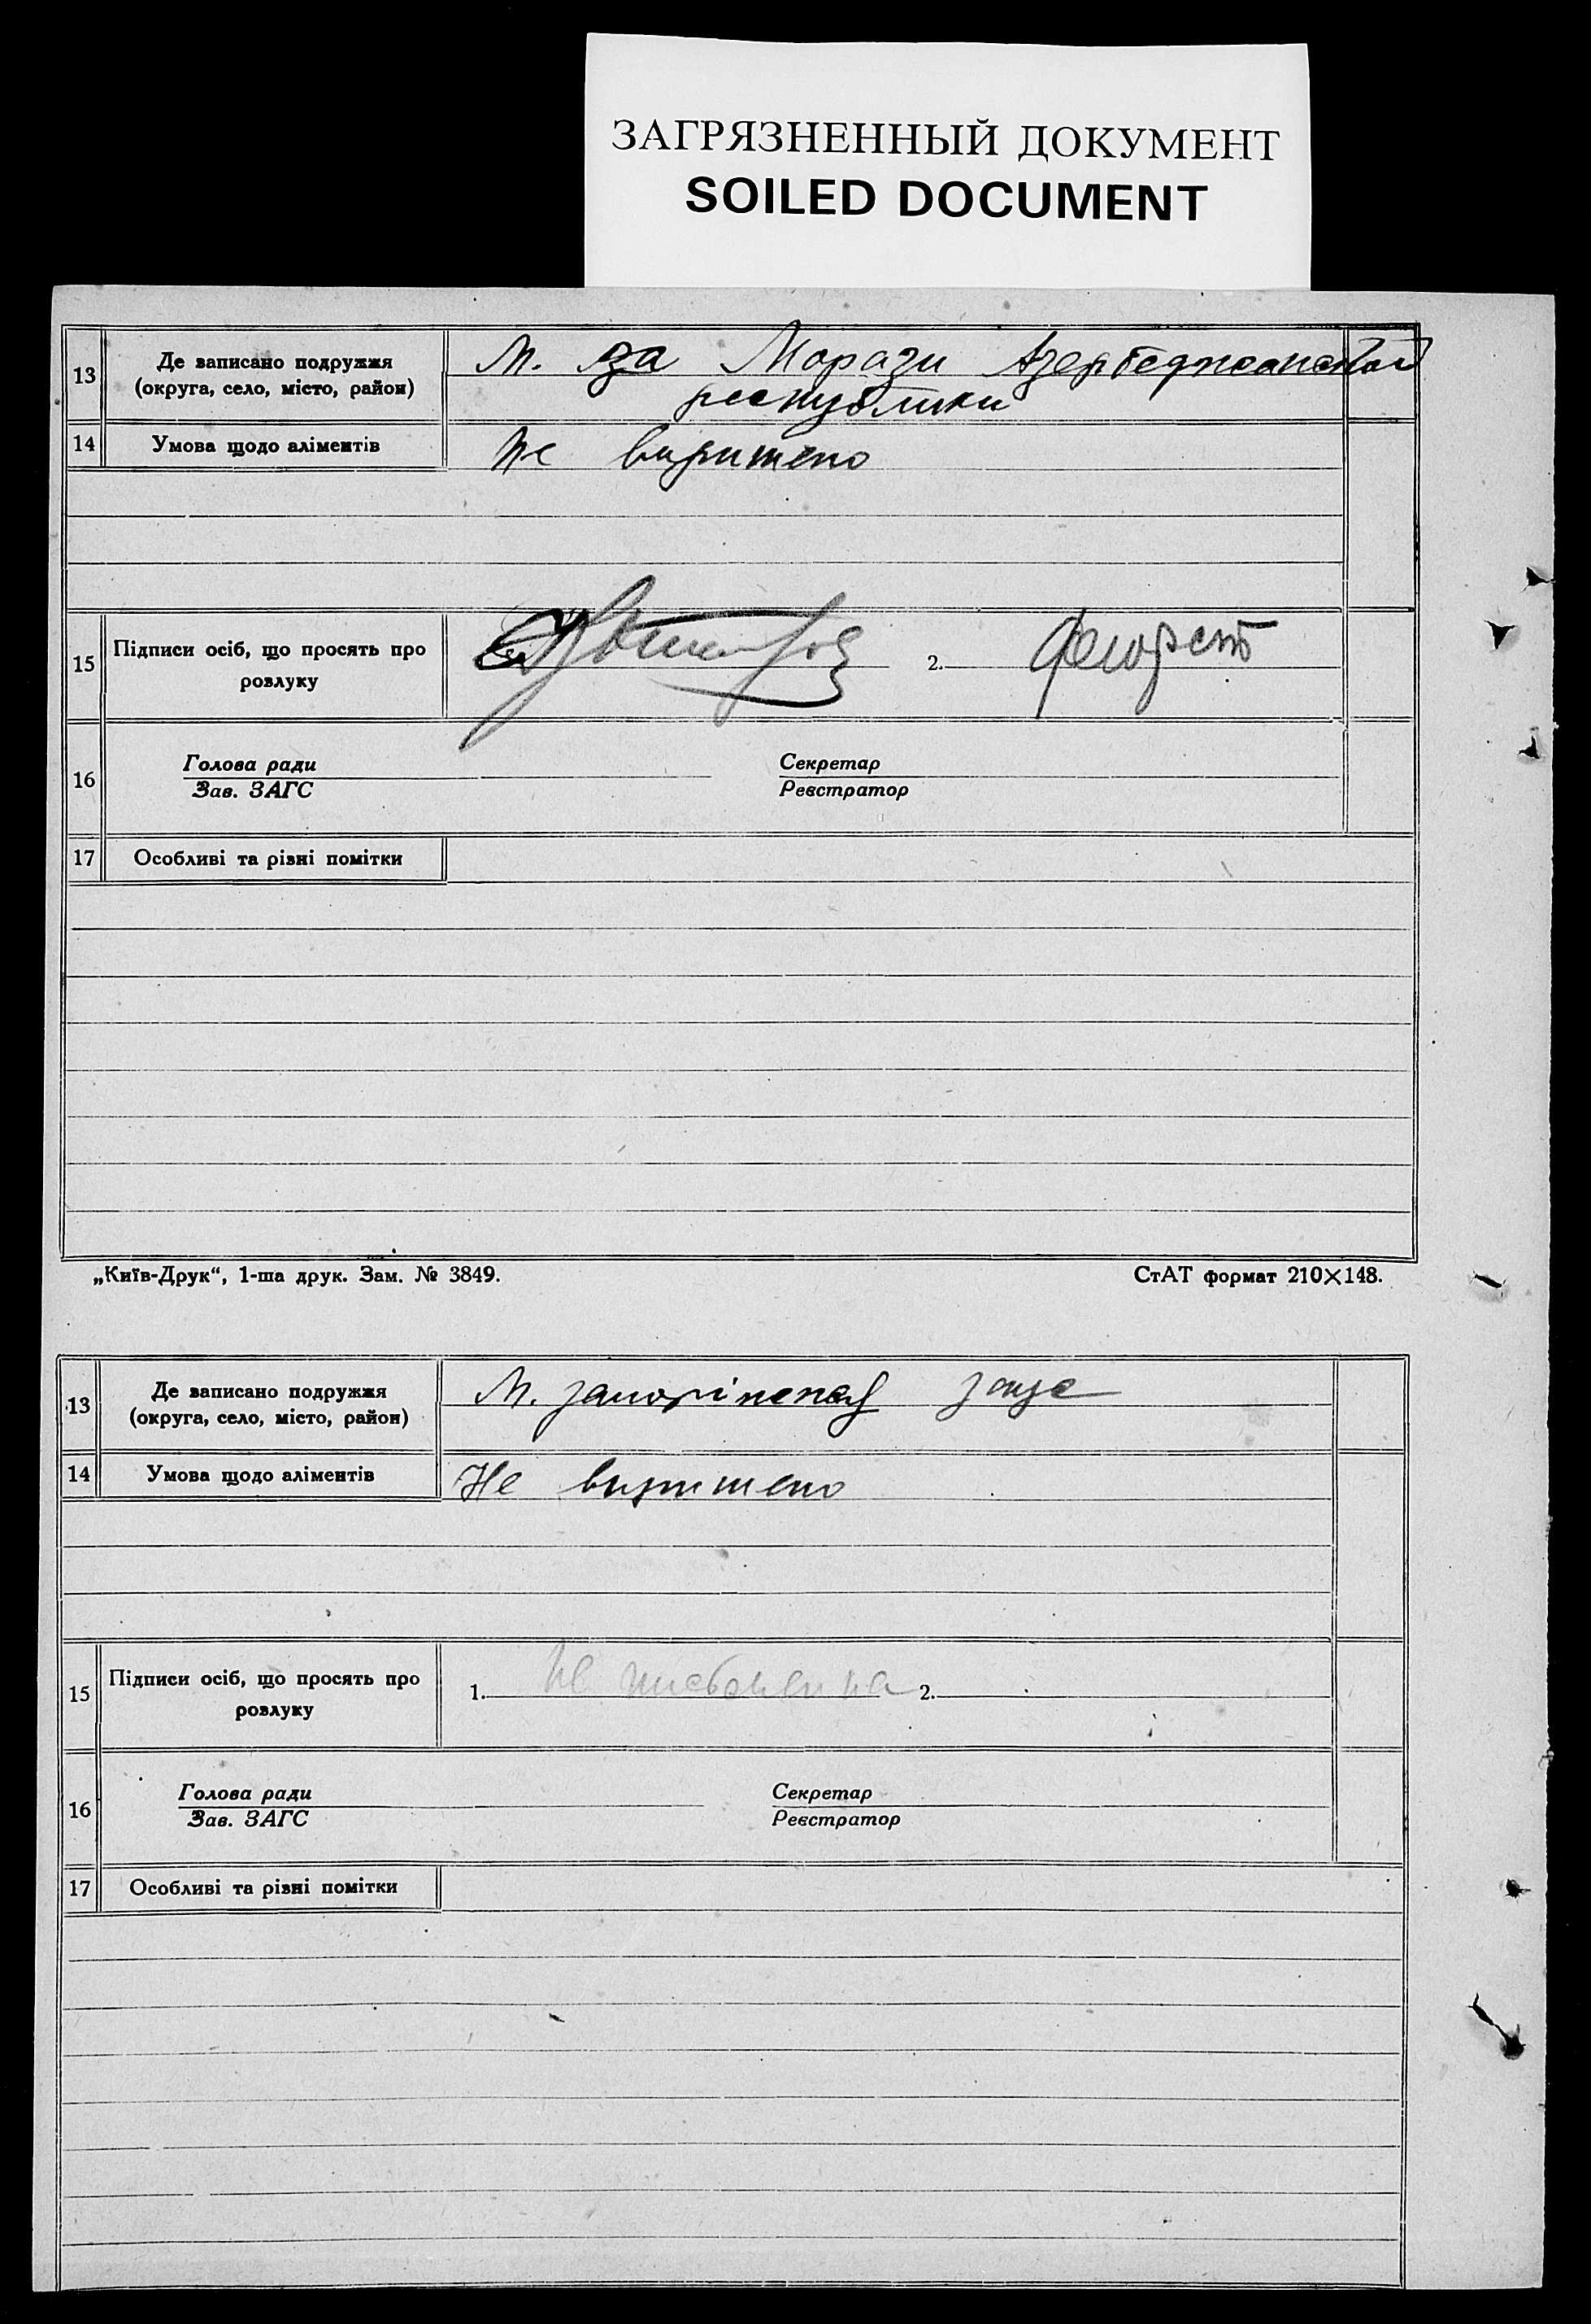 ЗАГРЯЗНЕННЫЙ ДОКУМЕНТ
SOILED DOCUMENT
13 Де записано подружжя
(округа, село, місто, район)
М. Морази Азербеджонской
республики
14 Умова щодо аліментів
Не виришено
15 Підписи осіб, що просять про
розлуку
2.
16 Голова ради
Зав. ЗАГС
Секретар
Реєстратор
17 Особливі та різні помітки
„Київ-Друк“, 1-ша друк. Зам. № 3849.
СтАТ формат 210×148.
13 Де записано подружжя
(округа, село, місто, район)
М.
14 Умова щодо аліментів
Не виришено
15 Підписи осіб, що просять про
розлуку
1. Не 2.
16 Голова ради
Зав. ЗАГС
Секретар
Реєстратор
17 Особливі та різні помітки